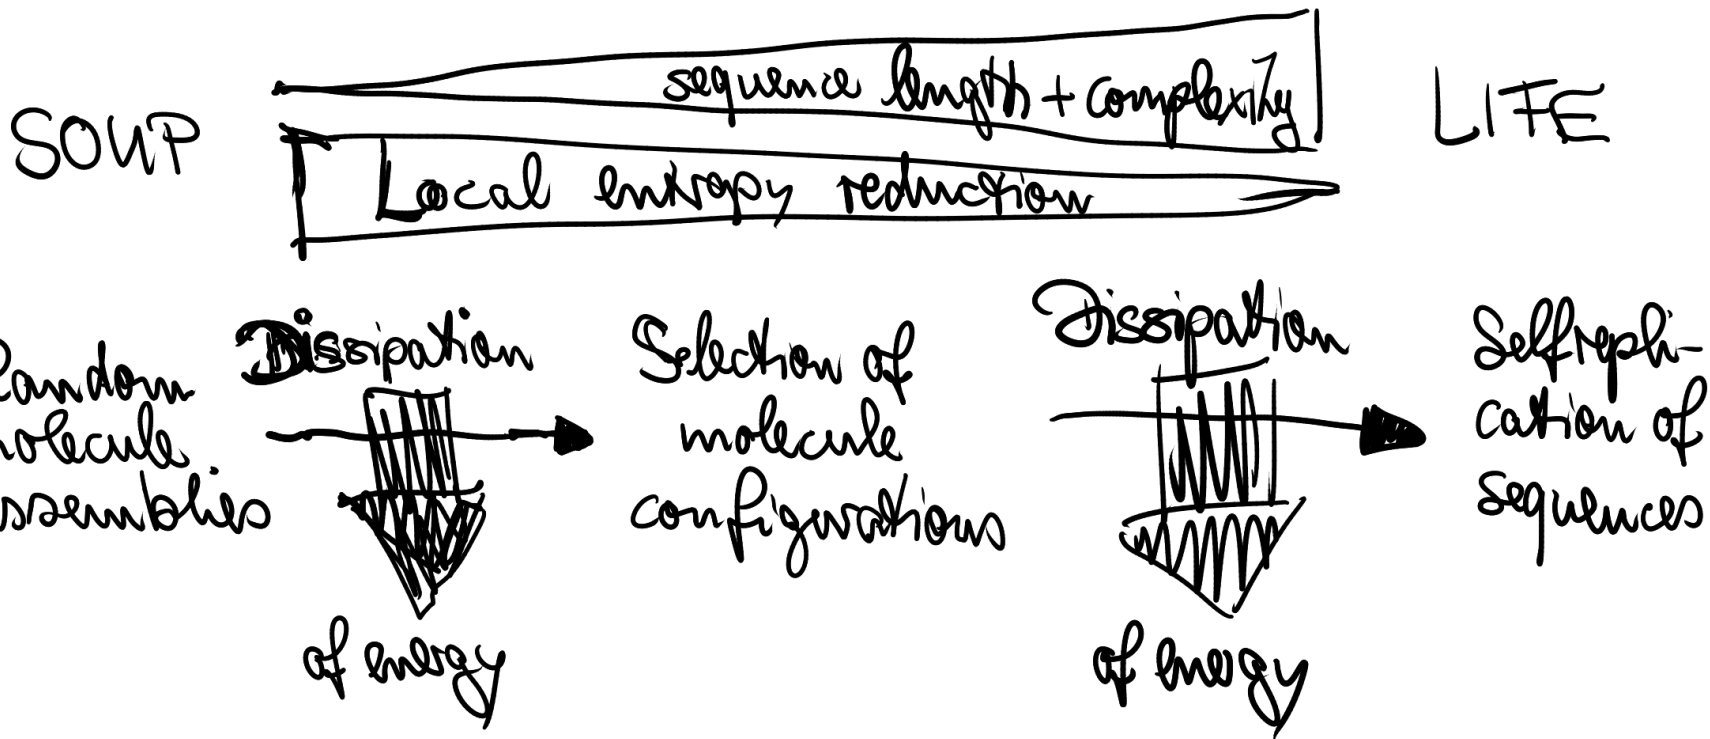 sequence length + complexity
SOUP
LIFE
Local entropy reduction
andom
olecule
ssemblies
Dissipation
of energy
Selection of
molecule
configurations
Dissipation
of energy
Selfrepli-
cation of
sequences